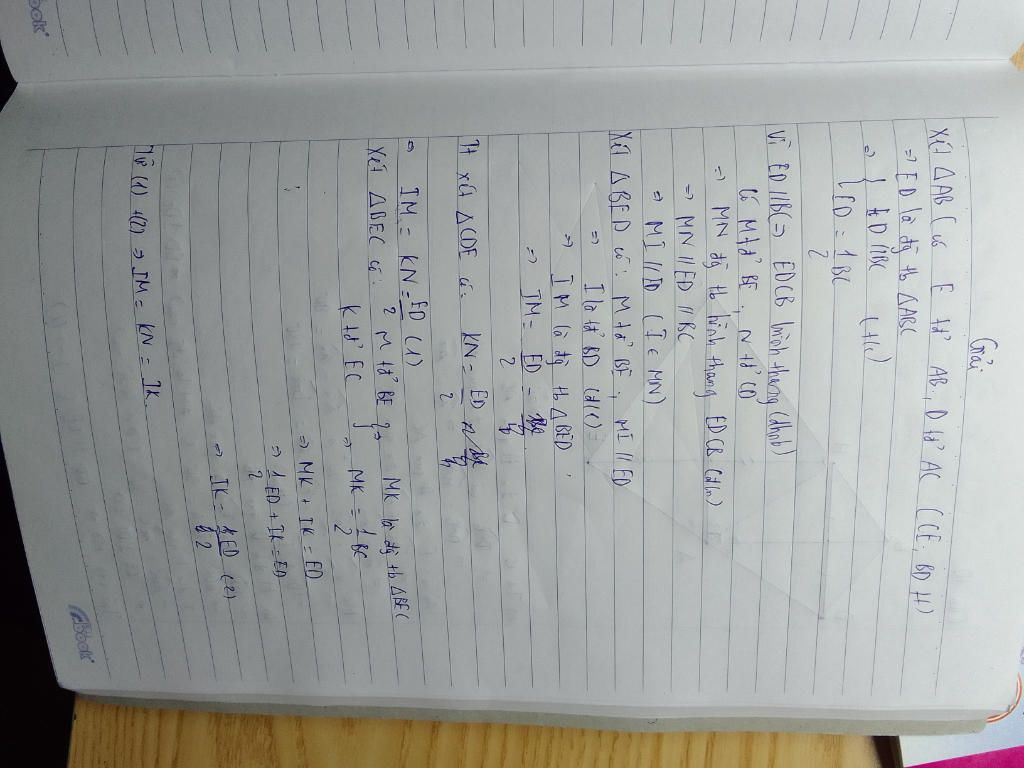 Giải
Xét ΔABC có E tđ AB, D tđ AC (CE, BD t²)
⇒ ED là đg tb ΔABC
⇒ { ED // BC (t/c)
ED = 1/2 BC
Vì ED // BC ⇒ EDCB hình thang (dhnb)
Có M tđ BE, N tđ CD
⇒ MN đg tb hình thang EDCB (đ/n)
⇒ MN // ED // BC
⇒ MI // ED (I ∈ MN)
Xét ΔBED có: M tđ BE, MI // ED
⇒ I là tđ BD (t/c)
⇒ IM là đg tb ΔBED.
⇒ IM = ED/2
Tt xét ΔCDE có: KN = ED/2
⇒ IM = KN = ED/2 (1)
Xét ΔBEC có: M tđ BE } ⇒ MK là đg tb ΔBEC
K tđ EC ⇒ MK = 1/2 BC
⇒ MK + IK = ED
⇒ 1/2 ED + IK = ED
⇒ IK = 1ED/2 (2)
Từ (1) + (2) ⇒ IM = KN = IK.
Book